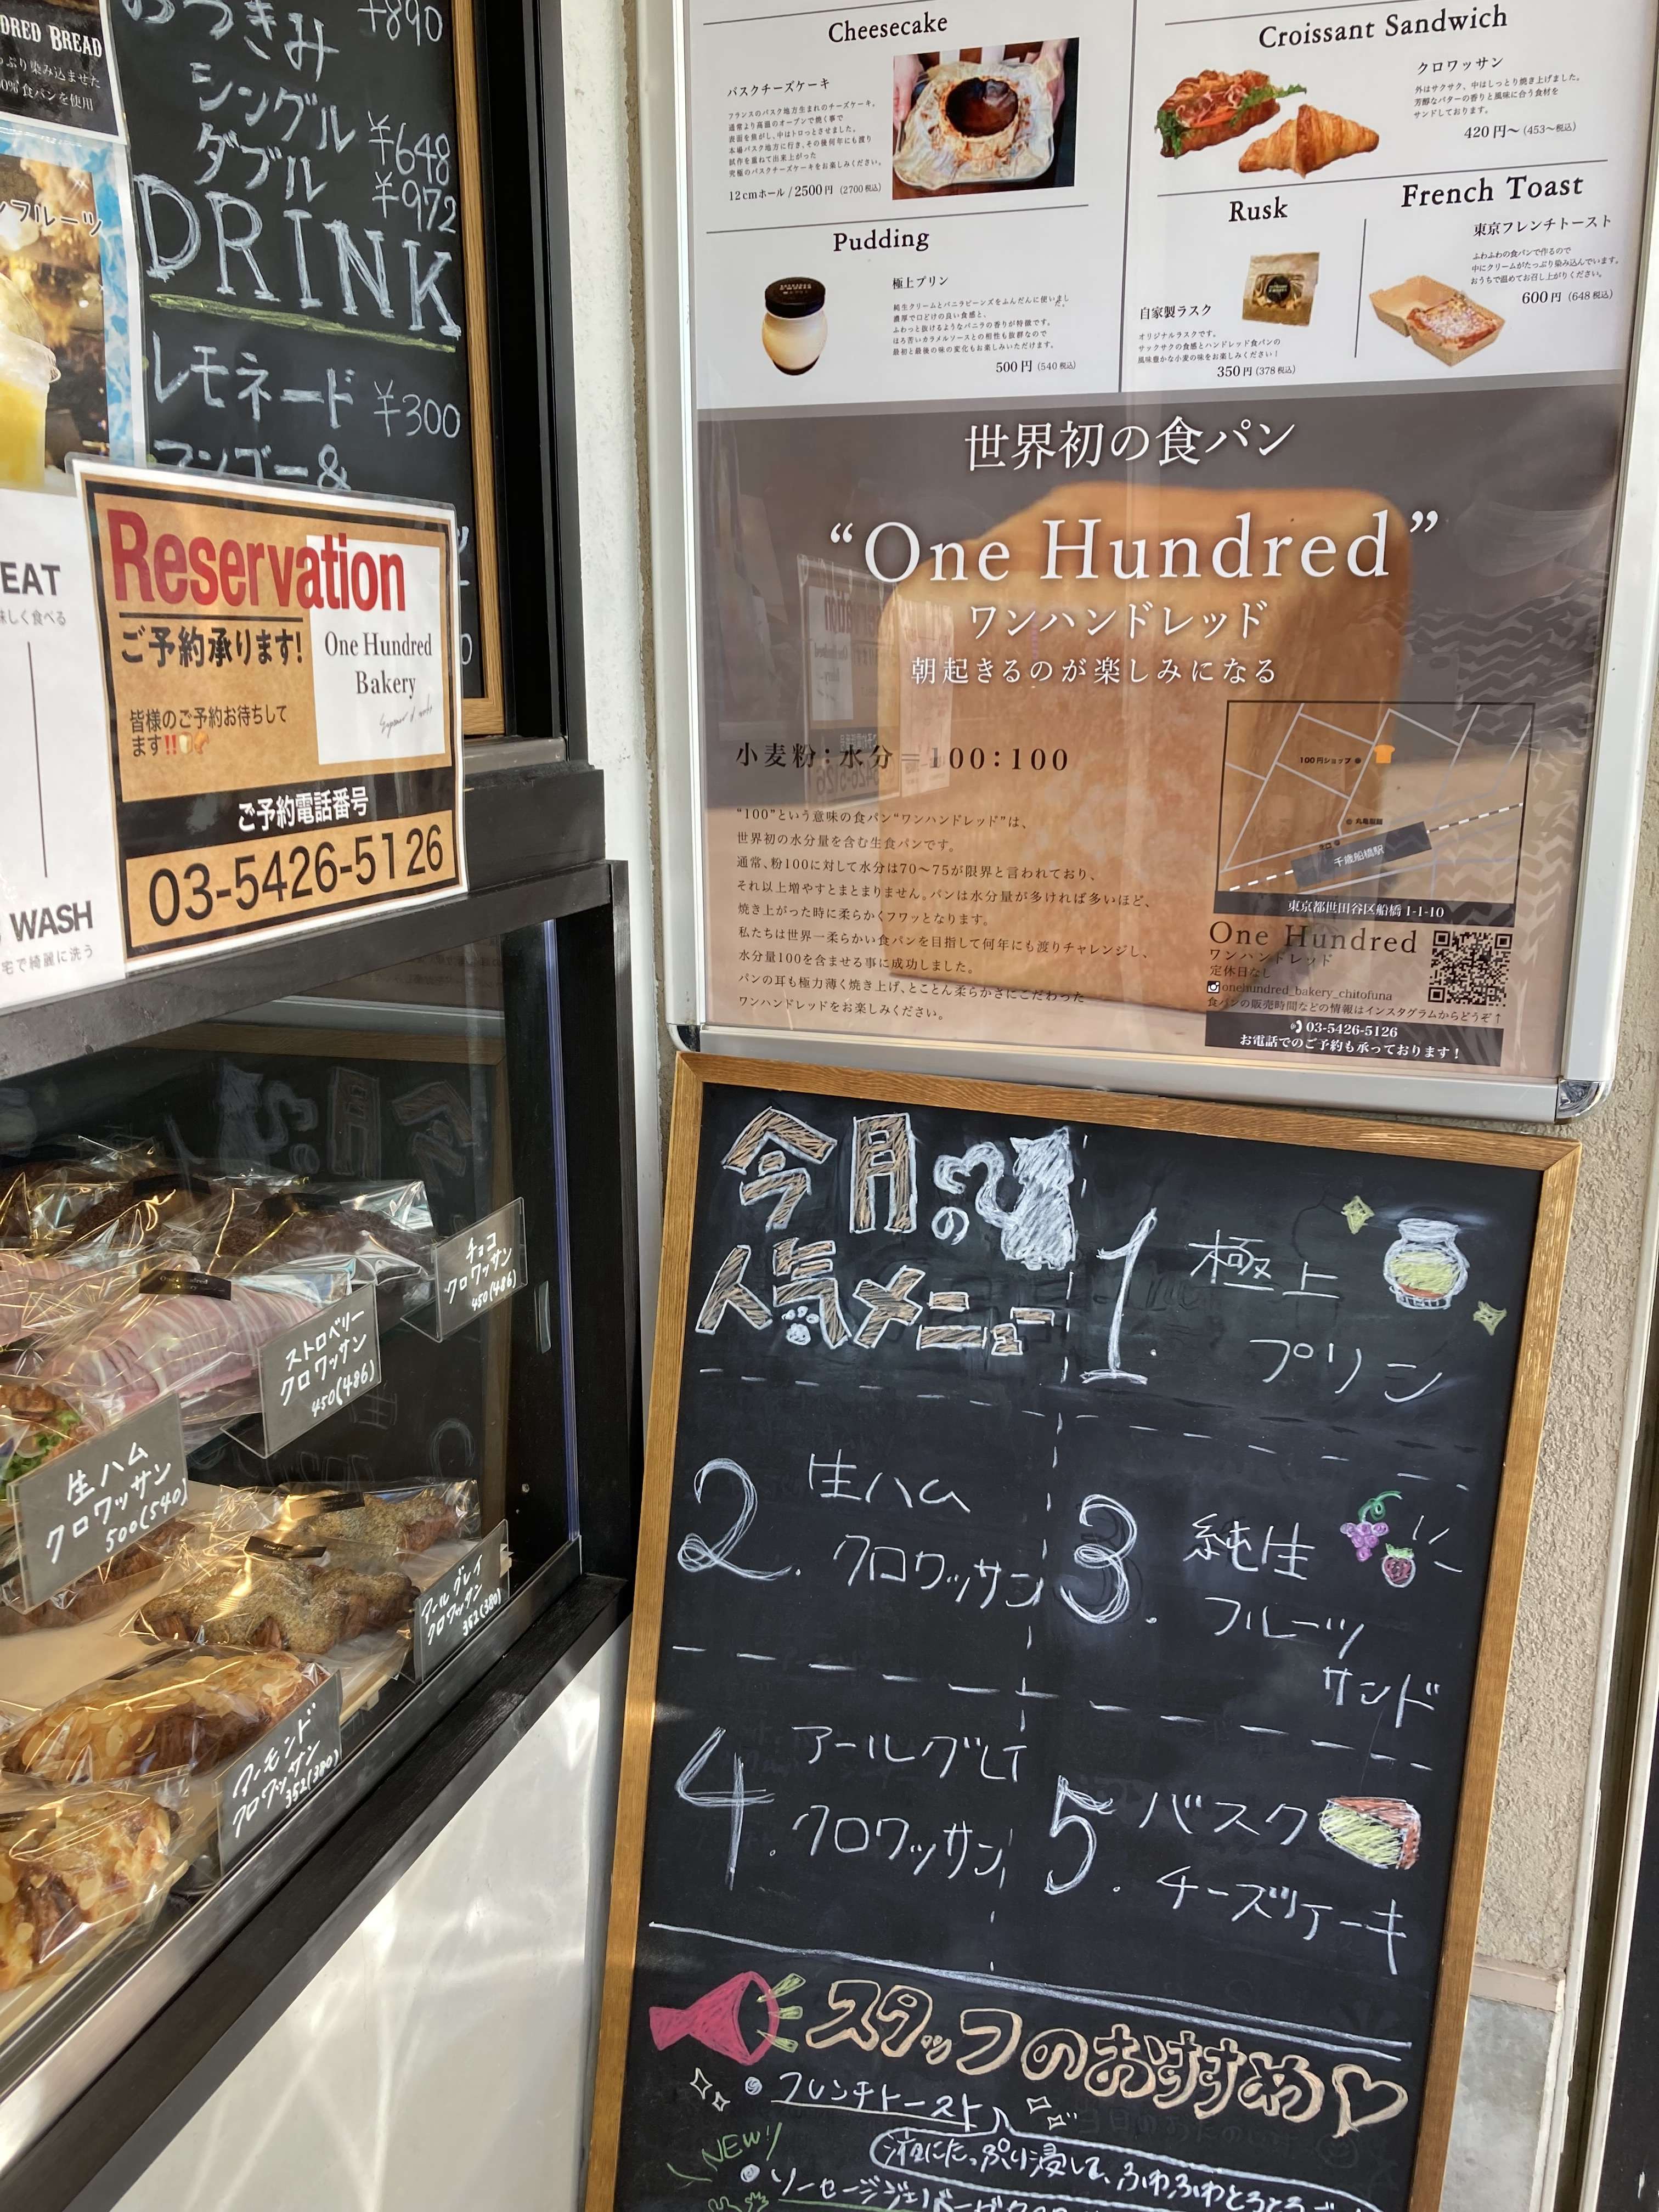 DRED BREAD
っぷり染み込ませた
0%食パンを使用
おつきみ
890
シングル ¥648
ダブル ¥972
DRINK
レモネード ¥300
マンゴー&
ンフルーツ
EAT
味しく食べる
WASH
宅で綺麗に洗う
Reservation
ご予約承ります!
One Hundred
Bakery
皆様のご予約お待ちして
ます!!
ご予約電話番号
03-5426-5126
チョコ
クロワッサン
450(486)
ストロベリー
クロワッサン
450(486)
生ハム
クロワッサン
500(540)
アールグレイ
クロワッサン
352(380)
アーモンド
クロワッサン
352(380)
Cheesecake
バスクチーズケーキ
フランスのバスク地方生まれのチーズケーキ。
通常より高温のオーブンで焼く事で
表面を焦がし、中はトロっとさせました。
本場バスク地方に行き、その後何年にも渡り
試作を重ねて出来上がった
究極のバスクチーズケーキをお楽しみください。
12cmホール / 2500円 (2700税込)
Pudding
極上プリン
純生クリームとバニラビーンズをふんだんに使いまし
た。
濃厚で口どけの良い食感と、
ふわっと抜けるようなバニラの香りが特徴です。
ほろ苦いカラメルソースとの相性も抜群なので
最初と最後の味の変化もお楽しみいただけます。
500円 (540税込)
Croissant Sandwich
クロワッサン
外はサクサク、中はしっとり焼き上げました。
芳醇なバターの香りと風味に合う食材を
サンドしております。
420円〜 (453〜税込)
Rusk
自家製ラスク
オリジナルラスクです。
サックサクの食感とハンドレッド食パンの
風味豊かな小麦の味をお楽しみください!
350円 (378税込)
French Toast
東京フレンチトースト
ふわふわの食パンで作るので
中にクリームがたっぷり染み込んでいます。
おうちで温めてお召し上がりください。
600円 (648税込)
世界初の食パン
“One Hundred”
ワンハンドレッド
朝起きるのが楽しみになる
小麦粉：水分＝100：100
“100”という意味の食パン“ワンハンドレッド”は、
世界初の水分量を含む生食パンです。
通常、粉100に対して水分は70〜75が限界と言われており、
それ以上増やすとまとまりません。パンは水分量が多ければ多いほど、
焼き上がった時に柔らかくフワッとなります。
私たちは世界一柔らかい食パンを目指して何年にも渡りチャレンジし、
水分量100を含ませる事に成功しました。
パンの耳も極力薄く焼き上げ、とことん柔らかさにこだわった
ワンハンドレッドをお楽しみください。
100円ショップ
丸亀製麺
北口
千歳船橋駅
東京都世田谷区船橋 1-1-10
One Hundred
ワンハンドレッド
定休日なし
onehundred_bakery_chitofuna
食パンの販売時間などの情報はインスタグラムからどうぞ↑
03-5426-5126
お電話でのご予約も承っております!
今月の
人気メニュー
1. 極上
プリン
2. 生ハム
クロワッサン
3. 純生
フルーツ
サンド
4. アールグレイ
クロワッサン
5. バスク
チーズケーキ
スタッフのおすすめ♡
フレンチトースト
液にたっぷり浸して、ふわふわとろとろ
NEW!